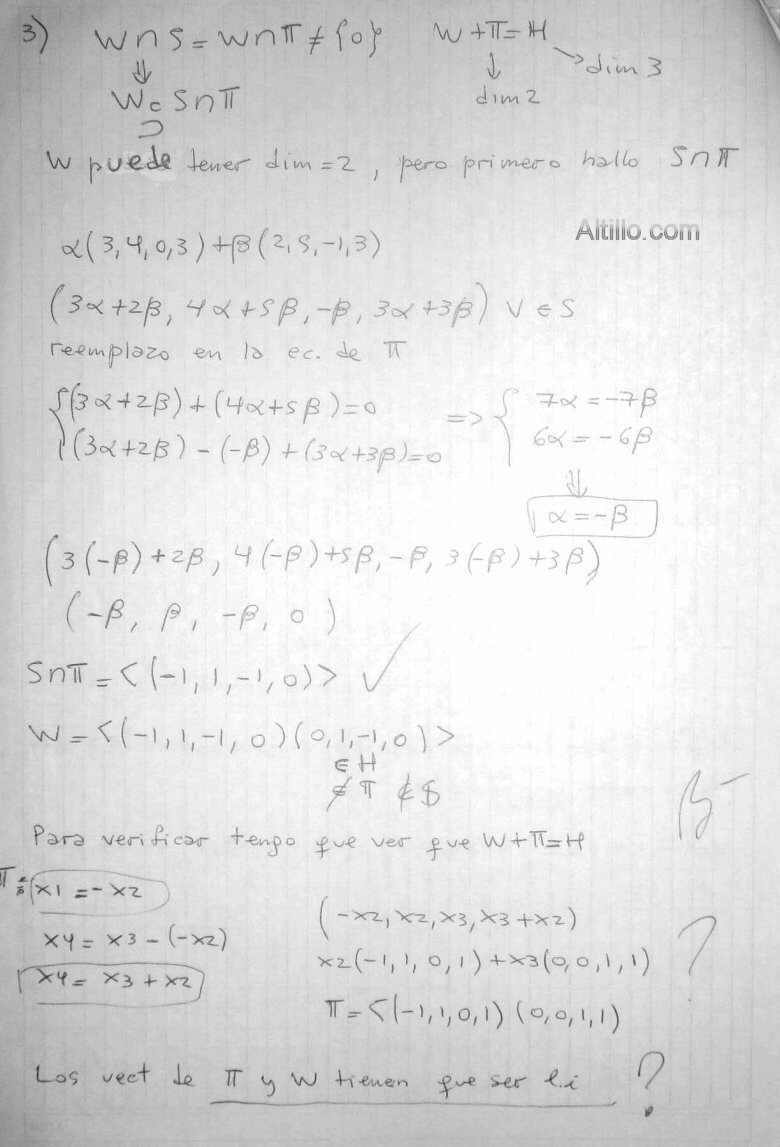 3) W∩S = W∩π ≠ {0} W + π = H
⇓ ↓ ↘ dim 3
W ⊂ S∩π dim 2
⊃
W puede tener dim = 2, pero primero hallo S∩π
Altillo.com
α(3,4,0,3) + β(2,5,-1,3)
(3α+2β, 4α+5β, -β, 3α+3β) V ∈ S
reemplazo en la ec. de π
{(3α+2β) + (4α+5β) = 0 => { 7α = -7β
(3α+2β) - (-β) + (3α+3β) = 0 6α = -6β
⇓
α = -β
(3(-β)+2β, 4(-β)+5β, -β, 3(-β)+3β)
(-β, β, -β, 0)
S∩π = <(-1,1,-1,0)> ✓
W = <(-1,1,-1,0)(0,1,-1,0)>
∈ H
∉ π ∉ S
B-
Para verificar tengo que ver que W+π=H
π: {x1 = -x2
(-x2, x2, x3, x3+x2)
x4 = x3 - (-x2)
x2(-1,1,0,1) + x3(0,0,1,1) ?
x4 = x3 + x2
π = <(-1,1,0,1)(0,0,1,1)
Los vect de π y W tienen que ser l.i ?